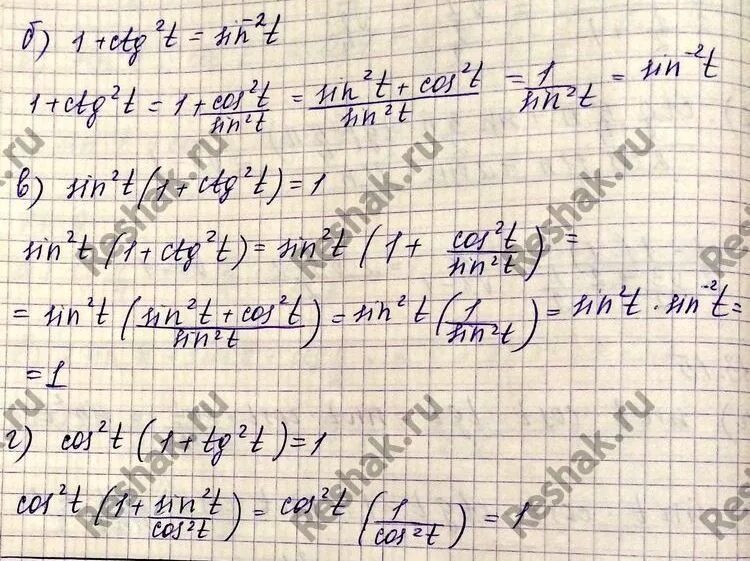 б) 1+ctg²t = sin⁻²t
1+ctg²t = 1+cos²t/sin²t = (sin²t+cos²t)/sin²t = 1/sin²t = sin⁻²t
в) sin²t(1+ctg²t)=1
sin²t(1+ctg²t)= sin²t(1+ cos²t/sin²t) =
= sin²t(sin²t+cos²t/sin²t)= sin²t(1/sin²t)= sin²t·sin⁻²t=
=1
г) cos²t(1+tg²t)=1
cos²t(1+sin²t/cos²t)= cos²t(1/cos²t) =1
Reshak.ru
Reshak.ru
Reshak.ru
Reshak.ru
Reshak.ru
Reshak.ru